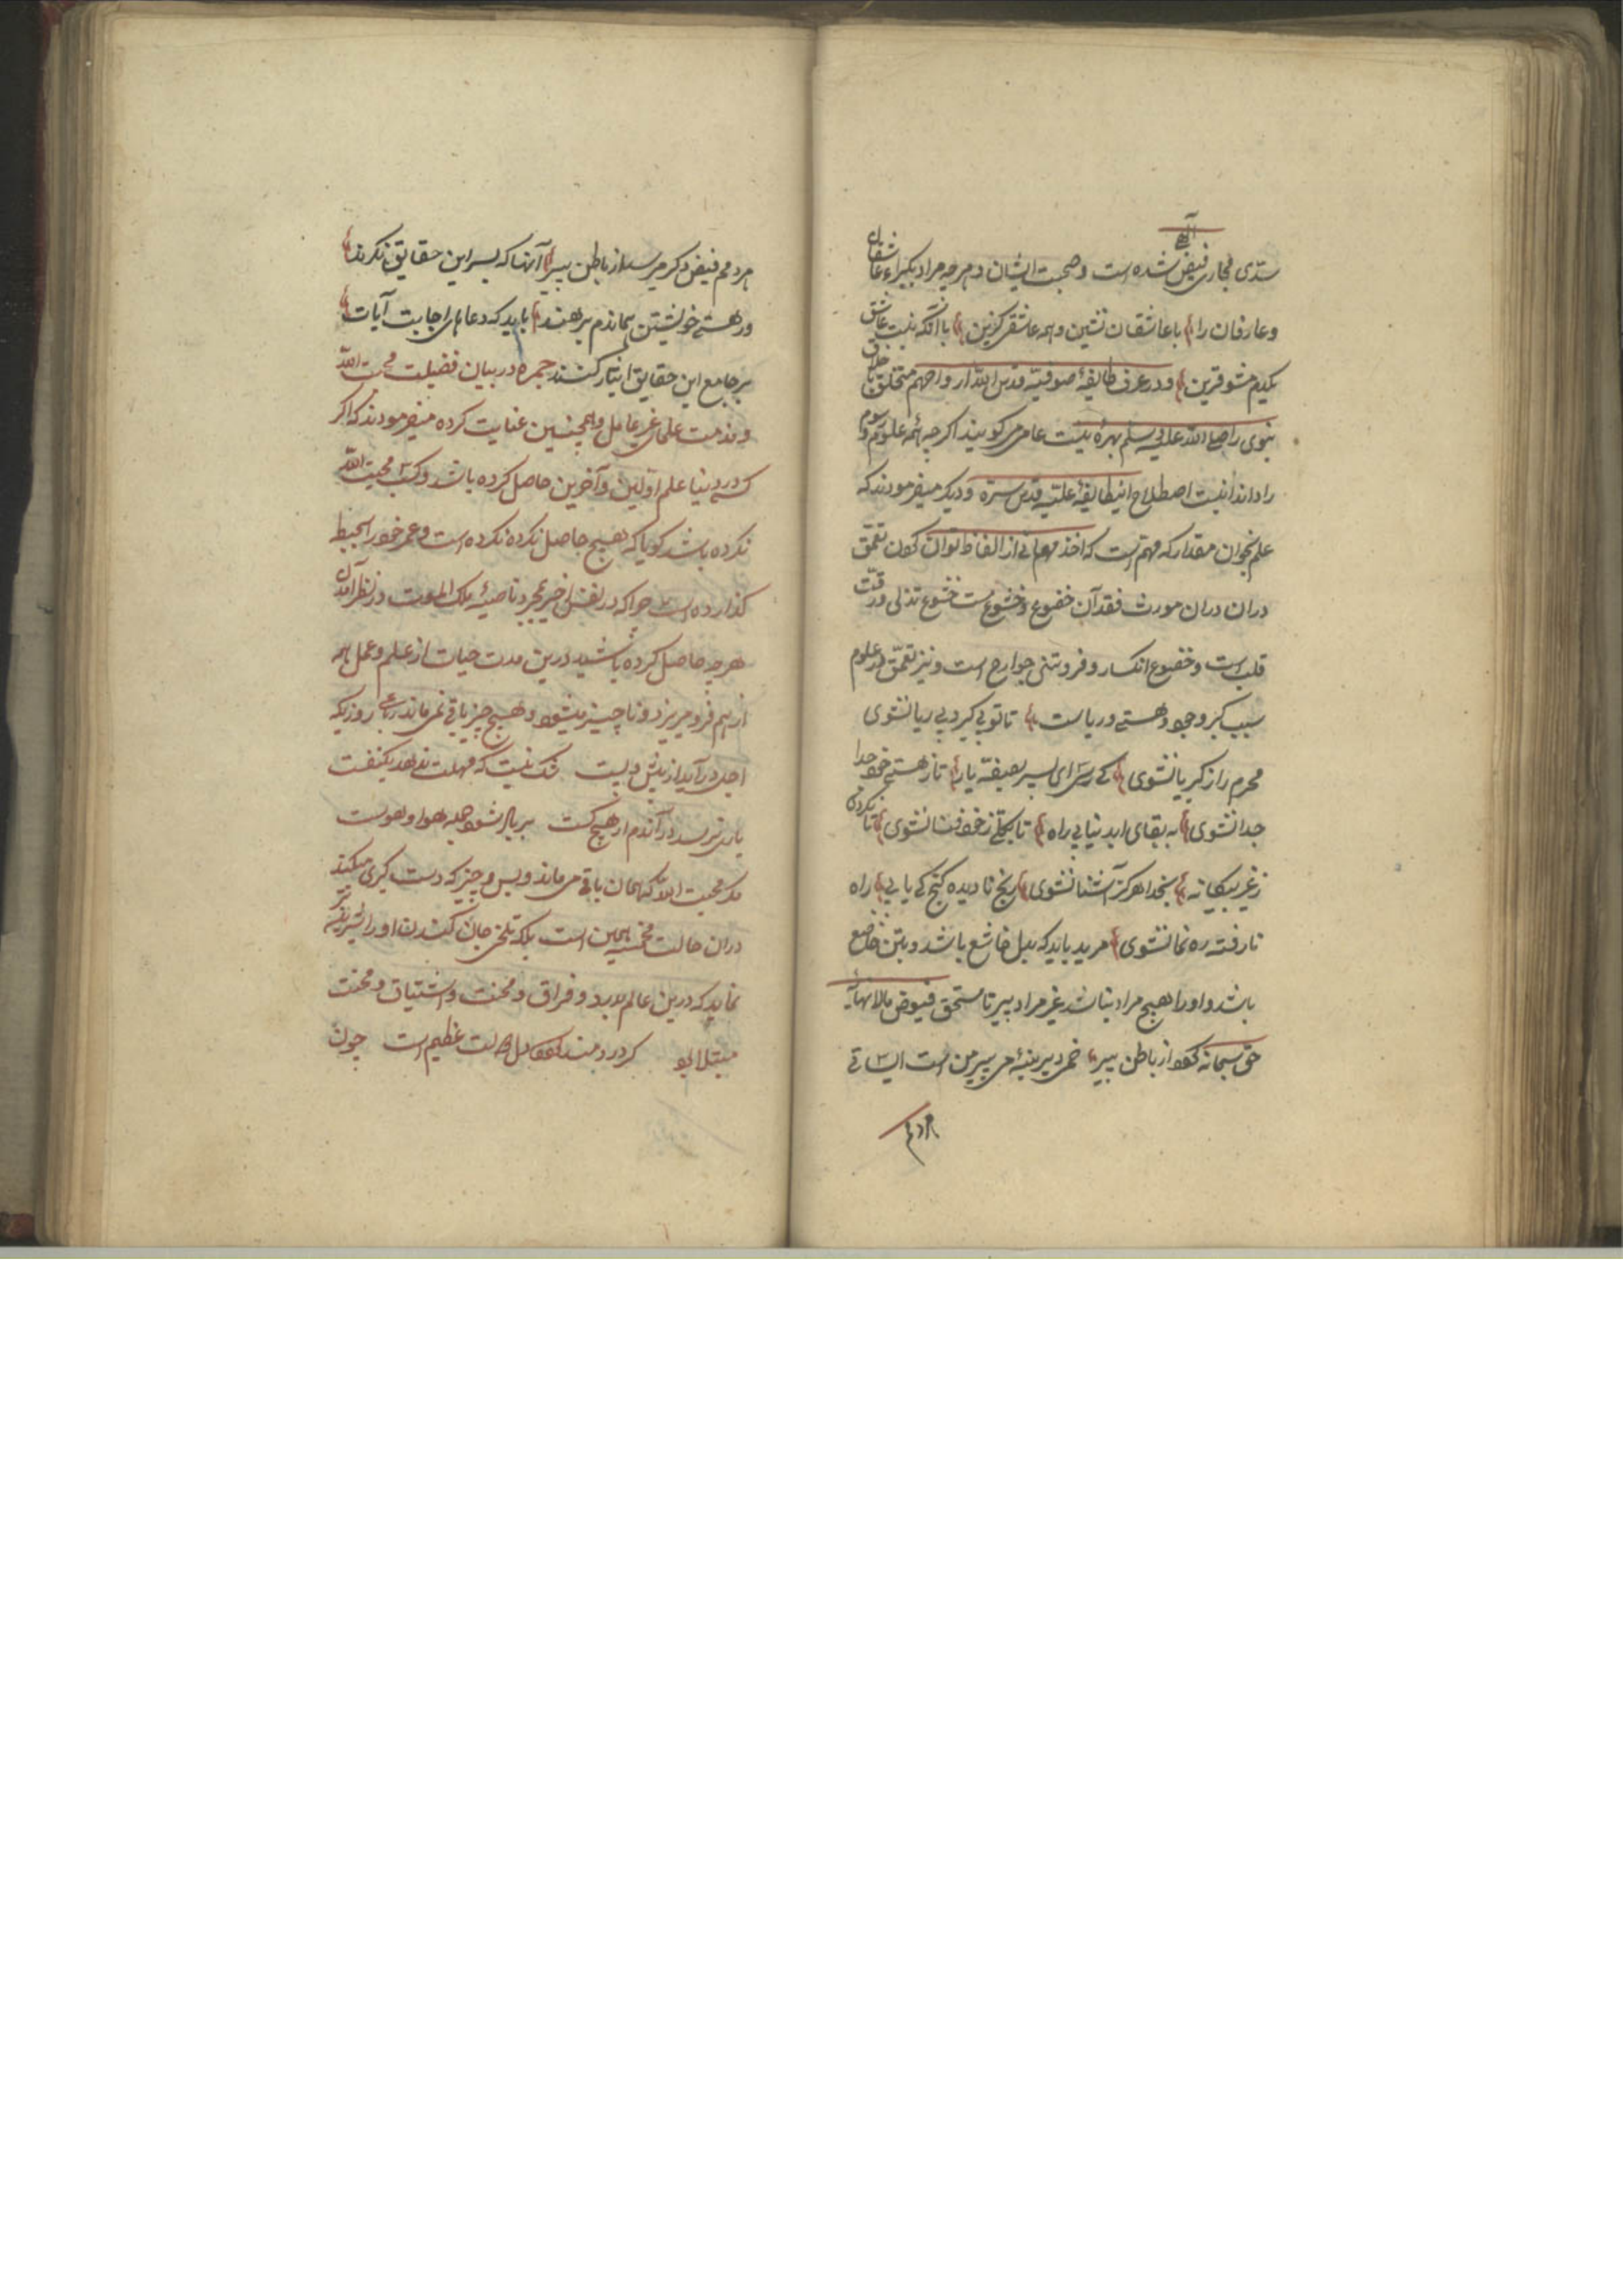 سدّی مجاری فیض شده است و صحبت ایشان و هرچه مراد بگیرای عاشقان
الهی
و عارفان را با عاشقان نشین و همه عاشقی گزین با آنکه نیست عاشق
یکدم مشو قرین و در عرف طایفهٔ صوفیّه قدس الله ارواحهم متخلق باخلاق
نبوی را صلی الله علیه وسلم بهرهٔ نیست عامی می کویند اکر چه همه علوم و رسوم
را داند اینست اصطلاح این طایفهٔ علیّه قدس سره و دیکر میفرمودند که
علم بخوان مقدار که مهم است که اخذ معانی از الفاظ توان کردن تعمّق
در ان دران مورث فقدان خضوع و خشوع است خشوع تذلی و رقّت
قلب است و خضوع انکسار و فروتنی جوارح است و نیز تعمّق در علوم
سبب کبر و وجود و هستی و ریاست تا تو بی کبر و بی ریا نشوی
محرم راز کبریا نشوی کی رسی ای پسر بصفّهٔ یار تا ز هستی خود جدا
جدا نشوی به بقای ابد نیابی راه تا بکلّی ز خود فنا نشوی تا نکردی
ز غیر بیکانه بخدا هرکز آشنا نشوی رنج نادیده کنج کی یابی راه
نارفته ره نما نشوی مرید باید که بدل خاشع باشد و بتن خاضع
باشد و او را هیچ مراد نباشد غیر مراد پیر تا مستحق فیوض مالانهایهٔ
حق سبحانه کردد از باطن پیر خمر دیرینهٔ می پیر من است ای ساقی
هردم
هردم فیض دکر می رسد از باطن پیر آنها که بسر این حقایق نکرند
و ز هستی خویشتن بماندم برهند باید که دعاهای اجابت آیات
بر جامع این حقایق ایثار کنند جمره در بیان فضیلت محبت الله
و مذمت علمای غیر عامل و همچنین عنایت کرده میفرمودند که اکر
کسی در دنیا علم اوّلین و آخرین حاصل کرده باشد و کسب محبت الله
نکرده باشد کویا که هیچ حاصل نکرده نکرده است و عمر خود را بخبط
کذارده است چرا که در نفس اخیر بمجرد ناصیهٔ ملک الموت در نظر آمدن
هرچه حاصل کرده باشید درین مدت حیات از علم و عمل همه
از هم فرو میریزد و ناچیز میشود و هیچ چیز باقی نمی ماند رباعی روزیکه
اجل در آید از پیش و پست شک نیست که مهلت ندهد یکنفست
یاری نرسد در آندم از هیچ کست بر باد شود جمله هوا و هوست
مکر محبت الله که همان باقی می ماند و بس و چیز که دست کیری میکند
دران حالت مخمسه همین است بلکه تلخی جان کندن او را شیرین تر
نماید که درین عالم بدرد و فراق و محنت و اشتیاق و محنت
مبتلا بود کر دردمند عظیم است چون